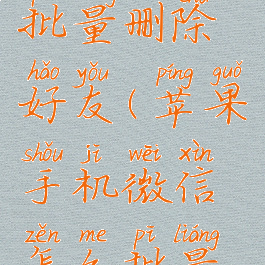 批量删除
hǎo yǒu píng guǒ
好友(苹果
shǒu jī wēi xìn
手机微信
zěn me pī liáng
怎么批量